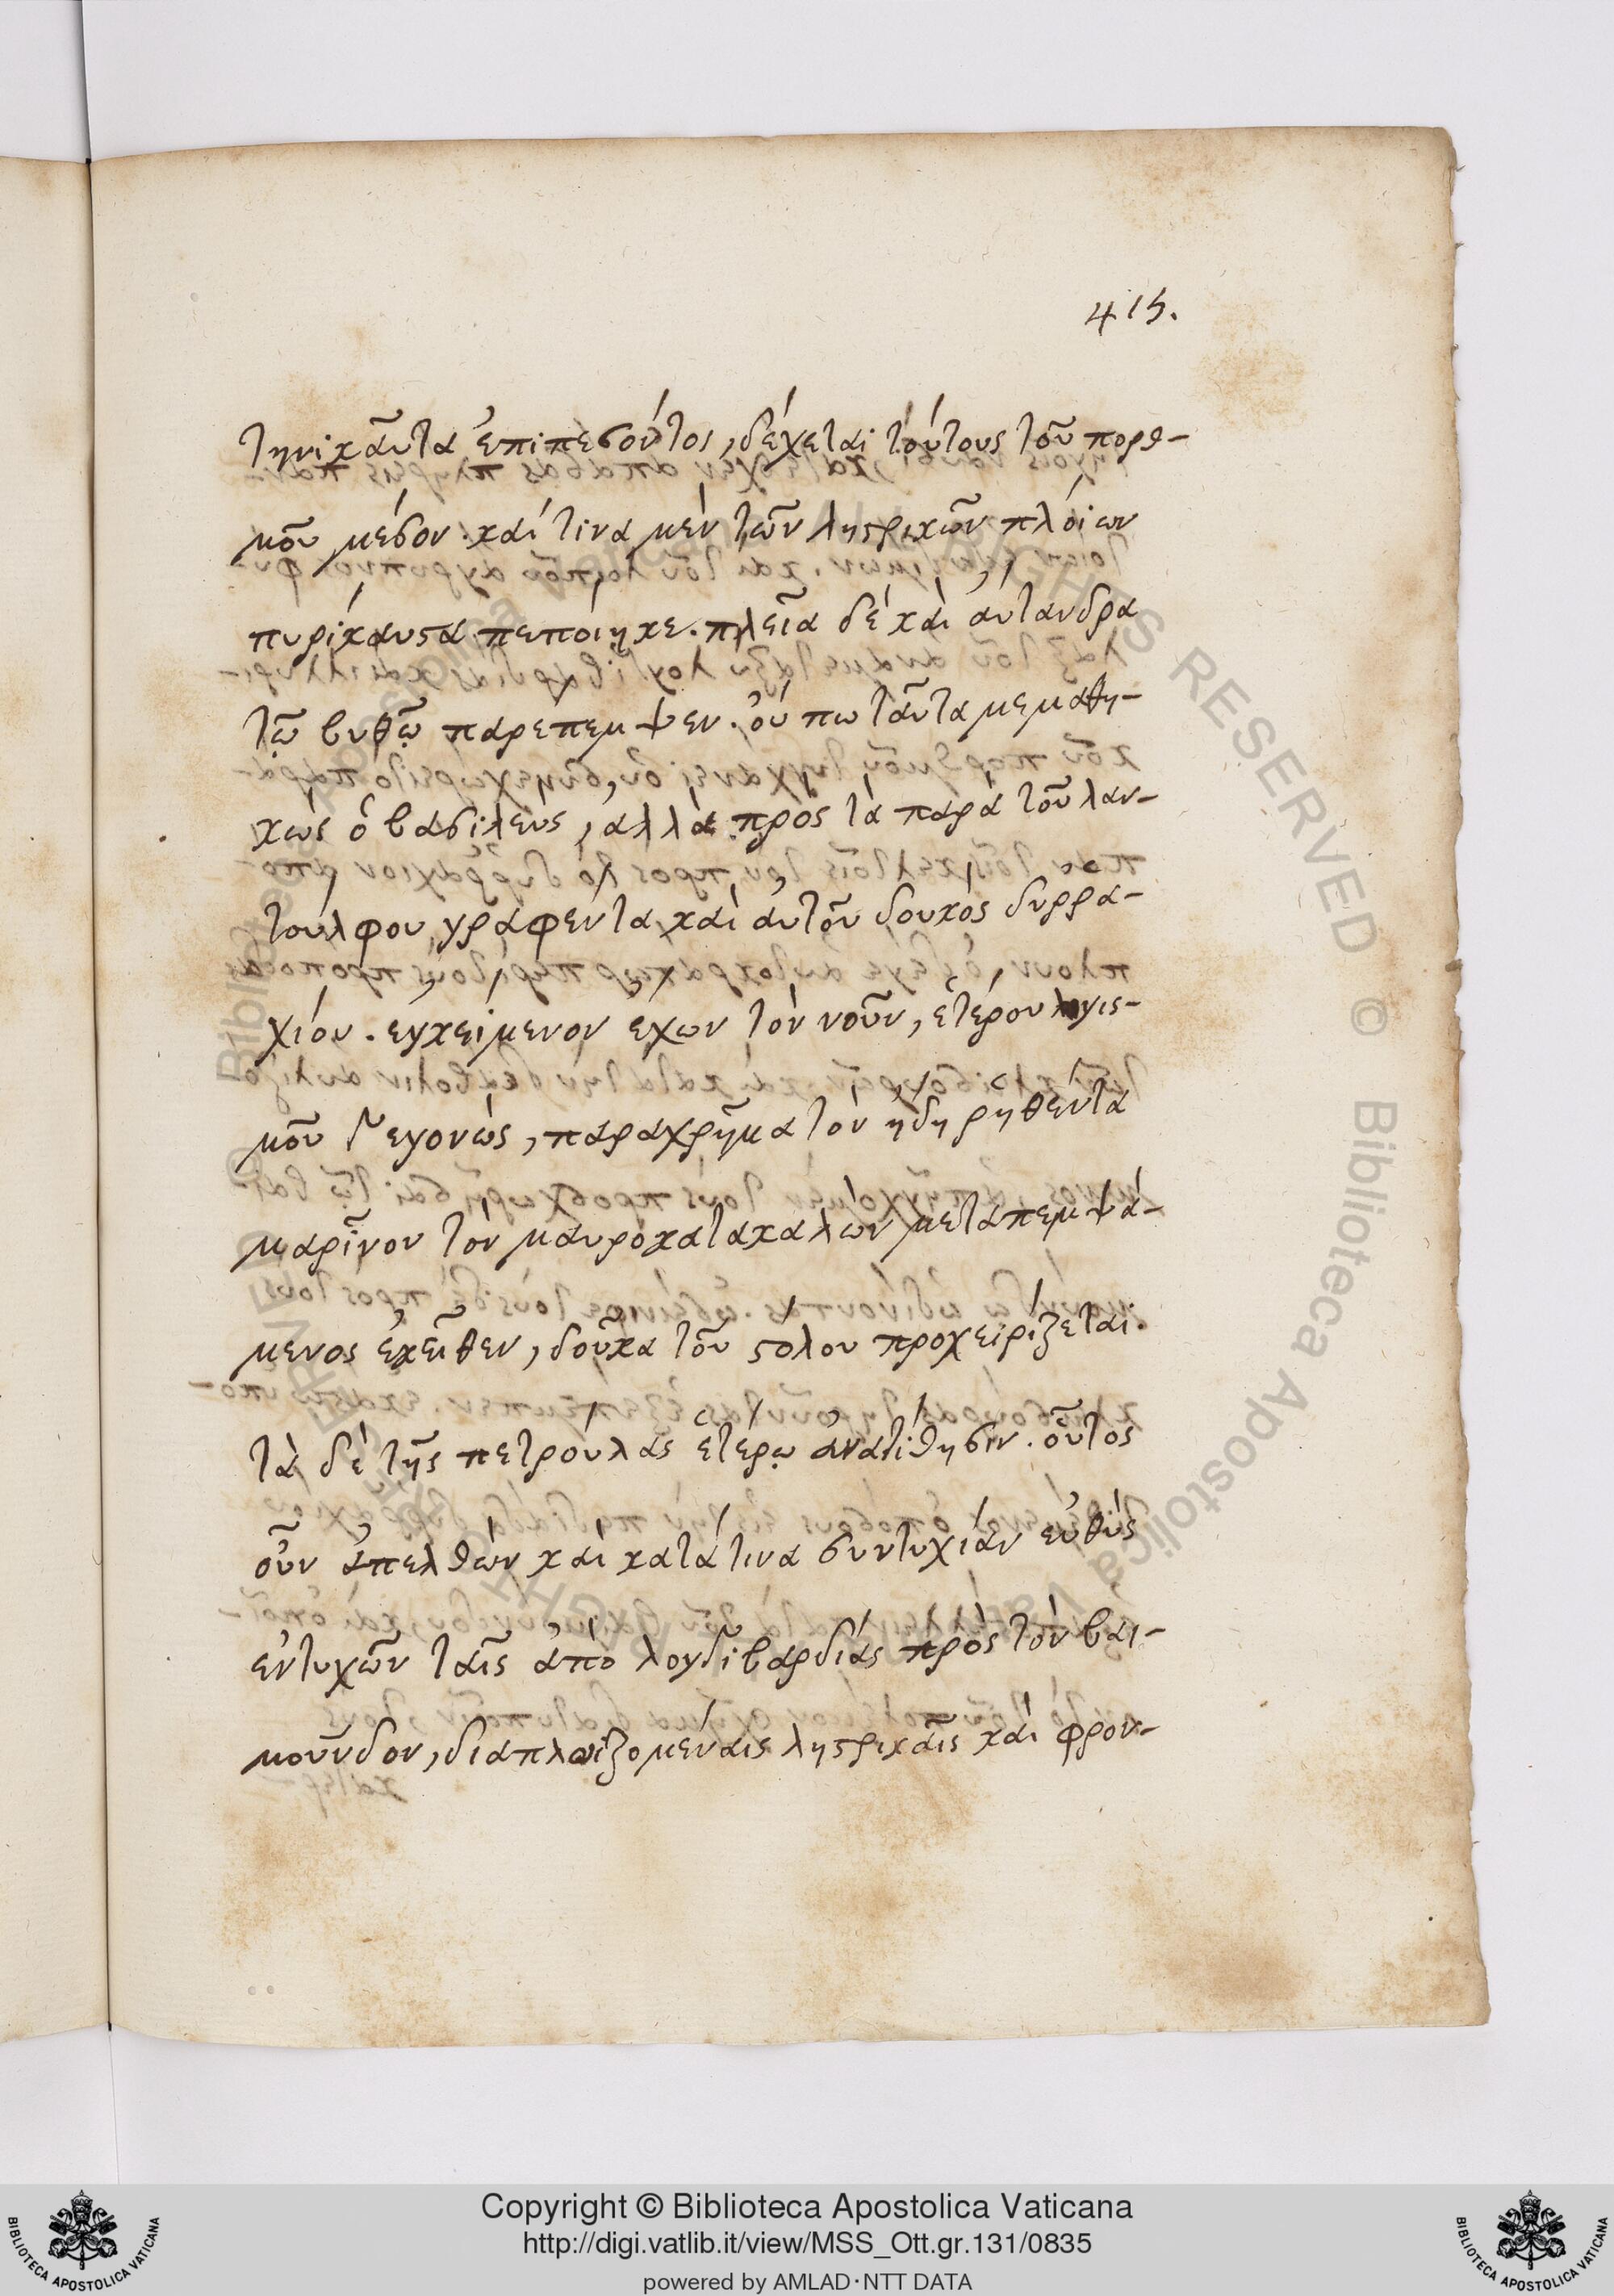 415.
τηνικᾶυτα ἐπιπεσόντος, δέχεται τούτους τοῦ πορθ-
μοῦ μέσον. καί τινα μέν τῶν ληστρικῶν πλόιων
πυρίκαυστα πεποίηκε. πλεῖα δέ καὶ ἀύτανδρα
τῶ βυθῷ παρεπεμψεν. ὀύ πω τᾶυτα μεμαθη-
κως ὁ βασιλεὺς, αλλὰ πρὸς τὰ παρὰ τοῦ λαν-
τούλφου γραφέντα καὶ αὐτοῦ δουκὸς δυρρα-
χίου. εγκείμενον ἔχων τὸν νοῦν, ἑτέρου λογισ-
μοῦ γεγονὼς, παραχρῆμα τὸν ἤδη ῥηθέντα
μαρῖνον τὸν μαυροκατακαλων μεταπεμψά-
μενος ἐκεῖθεν, δοῦκα τοῦ στόλου προχειρίζεται.
τὰ δὲ τῆς πετρούλας ἑτέρῳ ἀνατίθησιν. οὗτος
οὖν ἀπελθὼν καὶ κατά τινα συντυχίαν εὐθὺς
ἐντυχῶν ταῖς ἀπὸ λογγιβαρδίας πρὸς τὸν βαι-
μοῦνδον, διαπλωϊζομέναις ληστρικᾶῖς καὶ φρον-
Copyright © Biblioteca Apostolica Vaticana
http://digi.vatlib.it/view/MSS_Ott.gr.131/0835
powered by AMLAD·NTT DATA
BIBLIOTECA APOSTOLICA VATICANA
BIBLIOTECA APOSTOLICA VATICANA